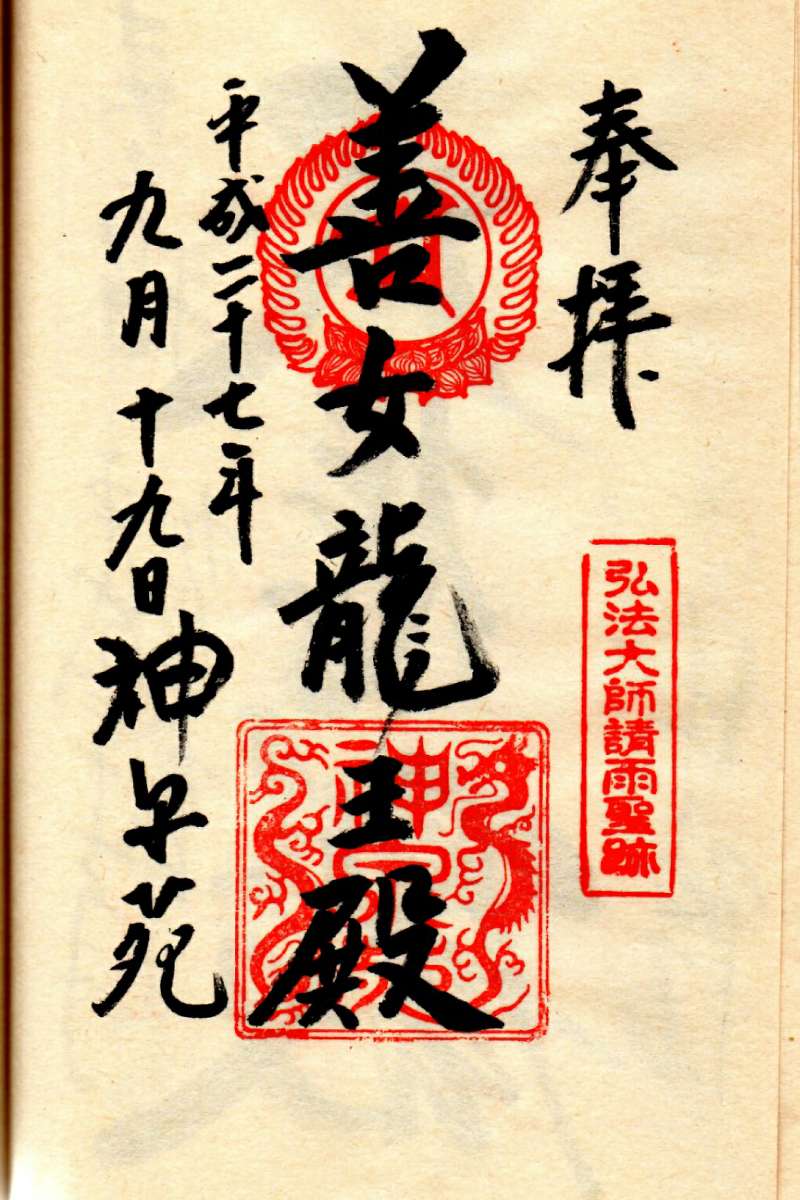 奉拝
弘法大師請雨聖跡
善女龍王殿
平成二十七年
九月十九日
神泉苑